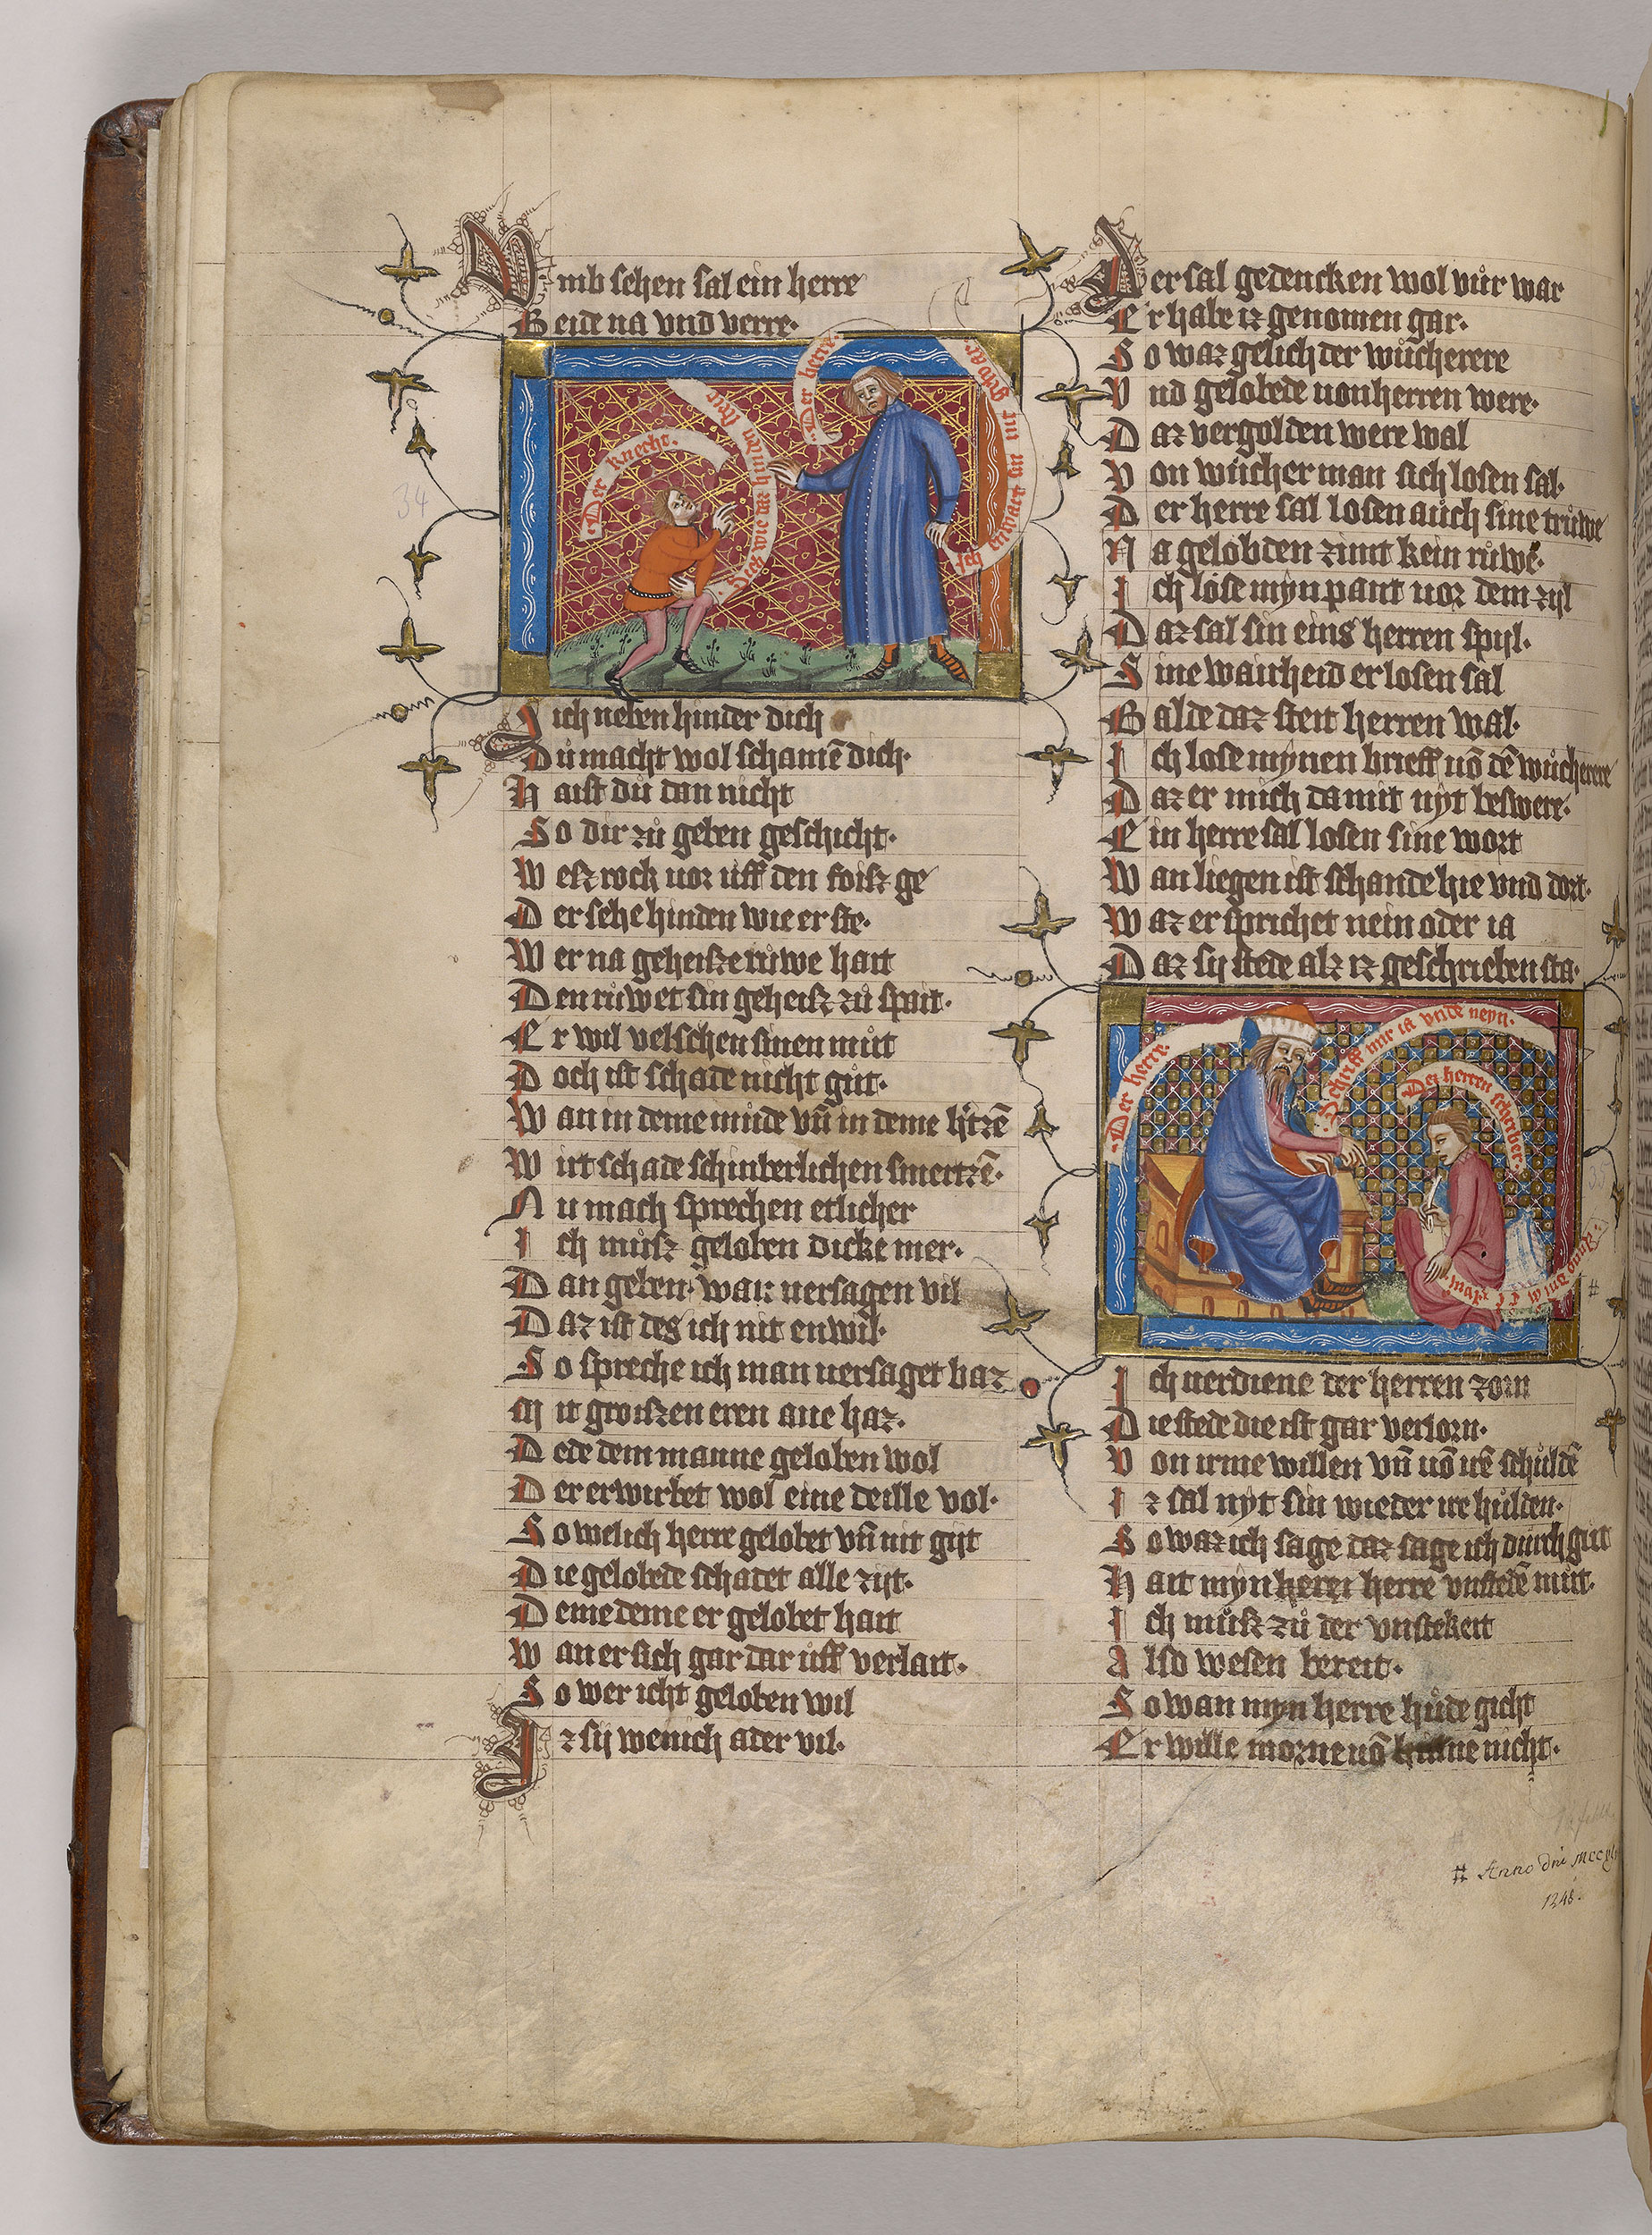 Vmb sehen sal ein herre
Beide na vnd verre·
Der knecht·
Sich wie daz hinden steit
Der herre·
Ich enwart sin nit gwar·
Sich neben hinder dich
Dů macht wol schamē dich·
Haist dů dan nicht
So dir zů geben geschicht·
Wesz rock uor uff den foisz ge
Der sehe hinden wie er ste·
Wer na geheisze růwe hait
Den růwet sin geheisz zů spait·
Er wil velschen sinen můt
Doch ist schade nicht gůt·
Wan in deme můde vn̄ in deme h'tzē
Wirt schade schinberlichen smertzē·
Nu mach sprechen etlicher
Ich můsz geloben dicke mer·
Dan geben· waz uersagen vil
Daz ist des ich nit enwil·
So spreche ich man uersaget baz
Mit groiszen eren ane haz·
Dede dem manne geloben wol
Der erwirbet wol eine deille vol·
So welich herre gelobet vn̄ nit git
Die gelobede schadet alle zijt·
Deme deme er gelobet hait
Wan er sich gar dar uff verlait·
So wer icht geloben wil
Iz sij wenich ader vil·
Der sal gedencken wol vůr war
Er habe iz genomen gar·
So waz gelich der wůcherere
Vnd gelobede uon herren were·
Daz vergolden were wal
Von wůcher man sich losen sal·
Der herre sal losen aůch sine trůwe
Na gelobden zimt kein růwe·
Ich lose myn pant uor dem zijl
Daz sal sin eins herren spijl·
Sine wairheid er losen sal
Balde daz steit herren wal·
Ich lose mynen brieff uō dē wůcherere
Daz er mich da mit nyt beswere·
Ein herre sal losen sine wort
Wan liegen ist schande hie vnd dort·
Waz er sprichet nein oder ia
Daz sij stede alz iz geschrieben sta·
Der herre·
Schriff mir ia vnde neyn·
Des herren schriber·
Ich uerdiene der herren zorn
Die stede die ist gar verlorn·
Von irme willen vn̄ uō irē schuldē
Iz sal nyt sin wieder ire hůlden·
So waz ich sage daz sage ich durch gůt
Hait myn herre vnstedē můt·
Ich můsz zů der vnstekeit
Also wesen bereit·
So wan myn herre hůde gicht
Er wille morne uō nicht·
# Anno dni
1248·
34